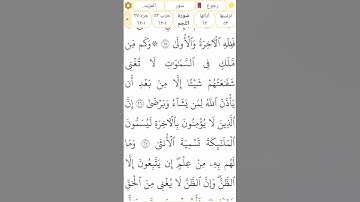 رجوع سور المزيد..
ترتيبها ٥٣ آياتها ٦٢ سورة النجم حزب ٥٣ جزء ٢٧
فَلِلَّهِ ٱلْءَاخِرَةُ وَٱلْأُولَىٰ ۝٢٥ ۞ وَكَم مِّن
مَّلَكٍ فِى ٱلسَّمَـٰوَٰتِ لَا تُغْنِى
شَفَـٰعَتُهُمْ شَيْـًٔا إِلَّا مِنۢ بَعْدِ أَن
يَأْذَنَ ٱللَّهُ لِمَن يَشَآءُ وَيَرْضَىٰٓ ۝٢٦ إِنَّ
ٱلَّذِينَ لَا يُؤْمِنُونَ بِٱلْءَاخِرَةِ لَيُسَمُّونَ
ٱلْمَلَـٰٓئِكَةَ تَسْمِيَةَ ٱلْأُنثَىٰ ۝٢٧ وَمَا
لَهُم بِهِۦ مِنْ عِلْمٍ ۖ إِن يَتَّبِعُونَ إِلَّا
ٱلظَّنَّ ۖ وَإِنَّ ٱلظَّنَّ لَا يُغْنِى مِنَ ٱلْحَقِّ